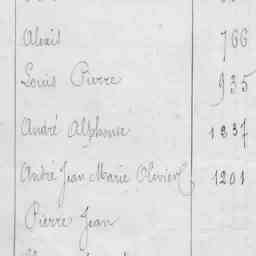 Alexis 766
Louis Pierre 935
André Alphonse 1237
André Jean Marie Olivier 1201
Pierre Jean